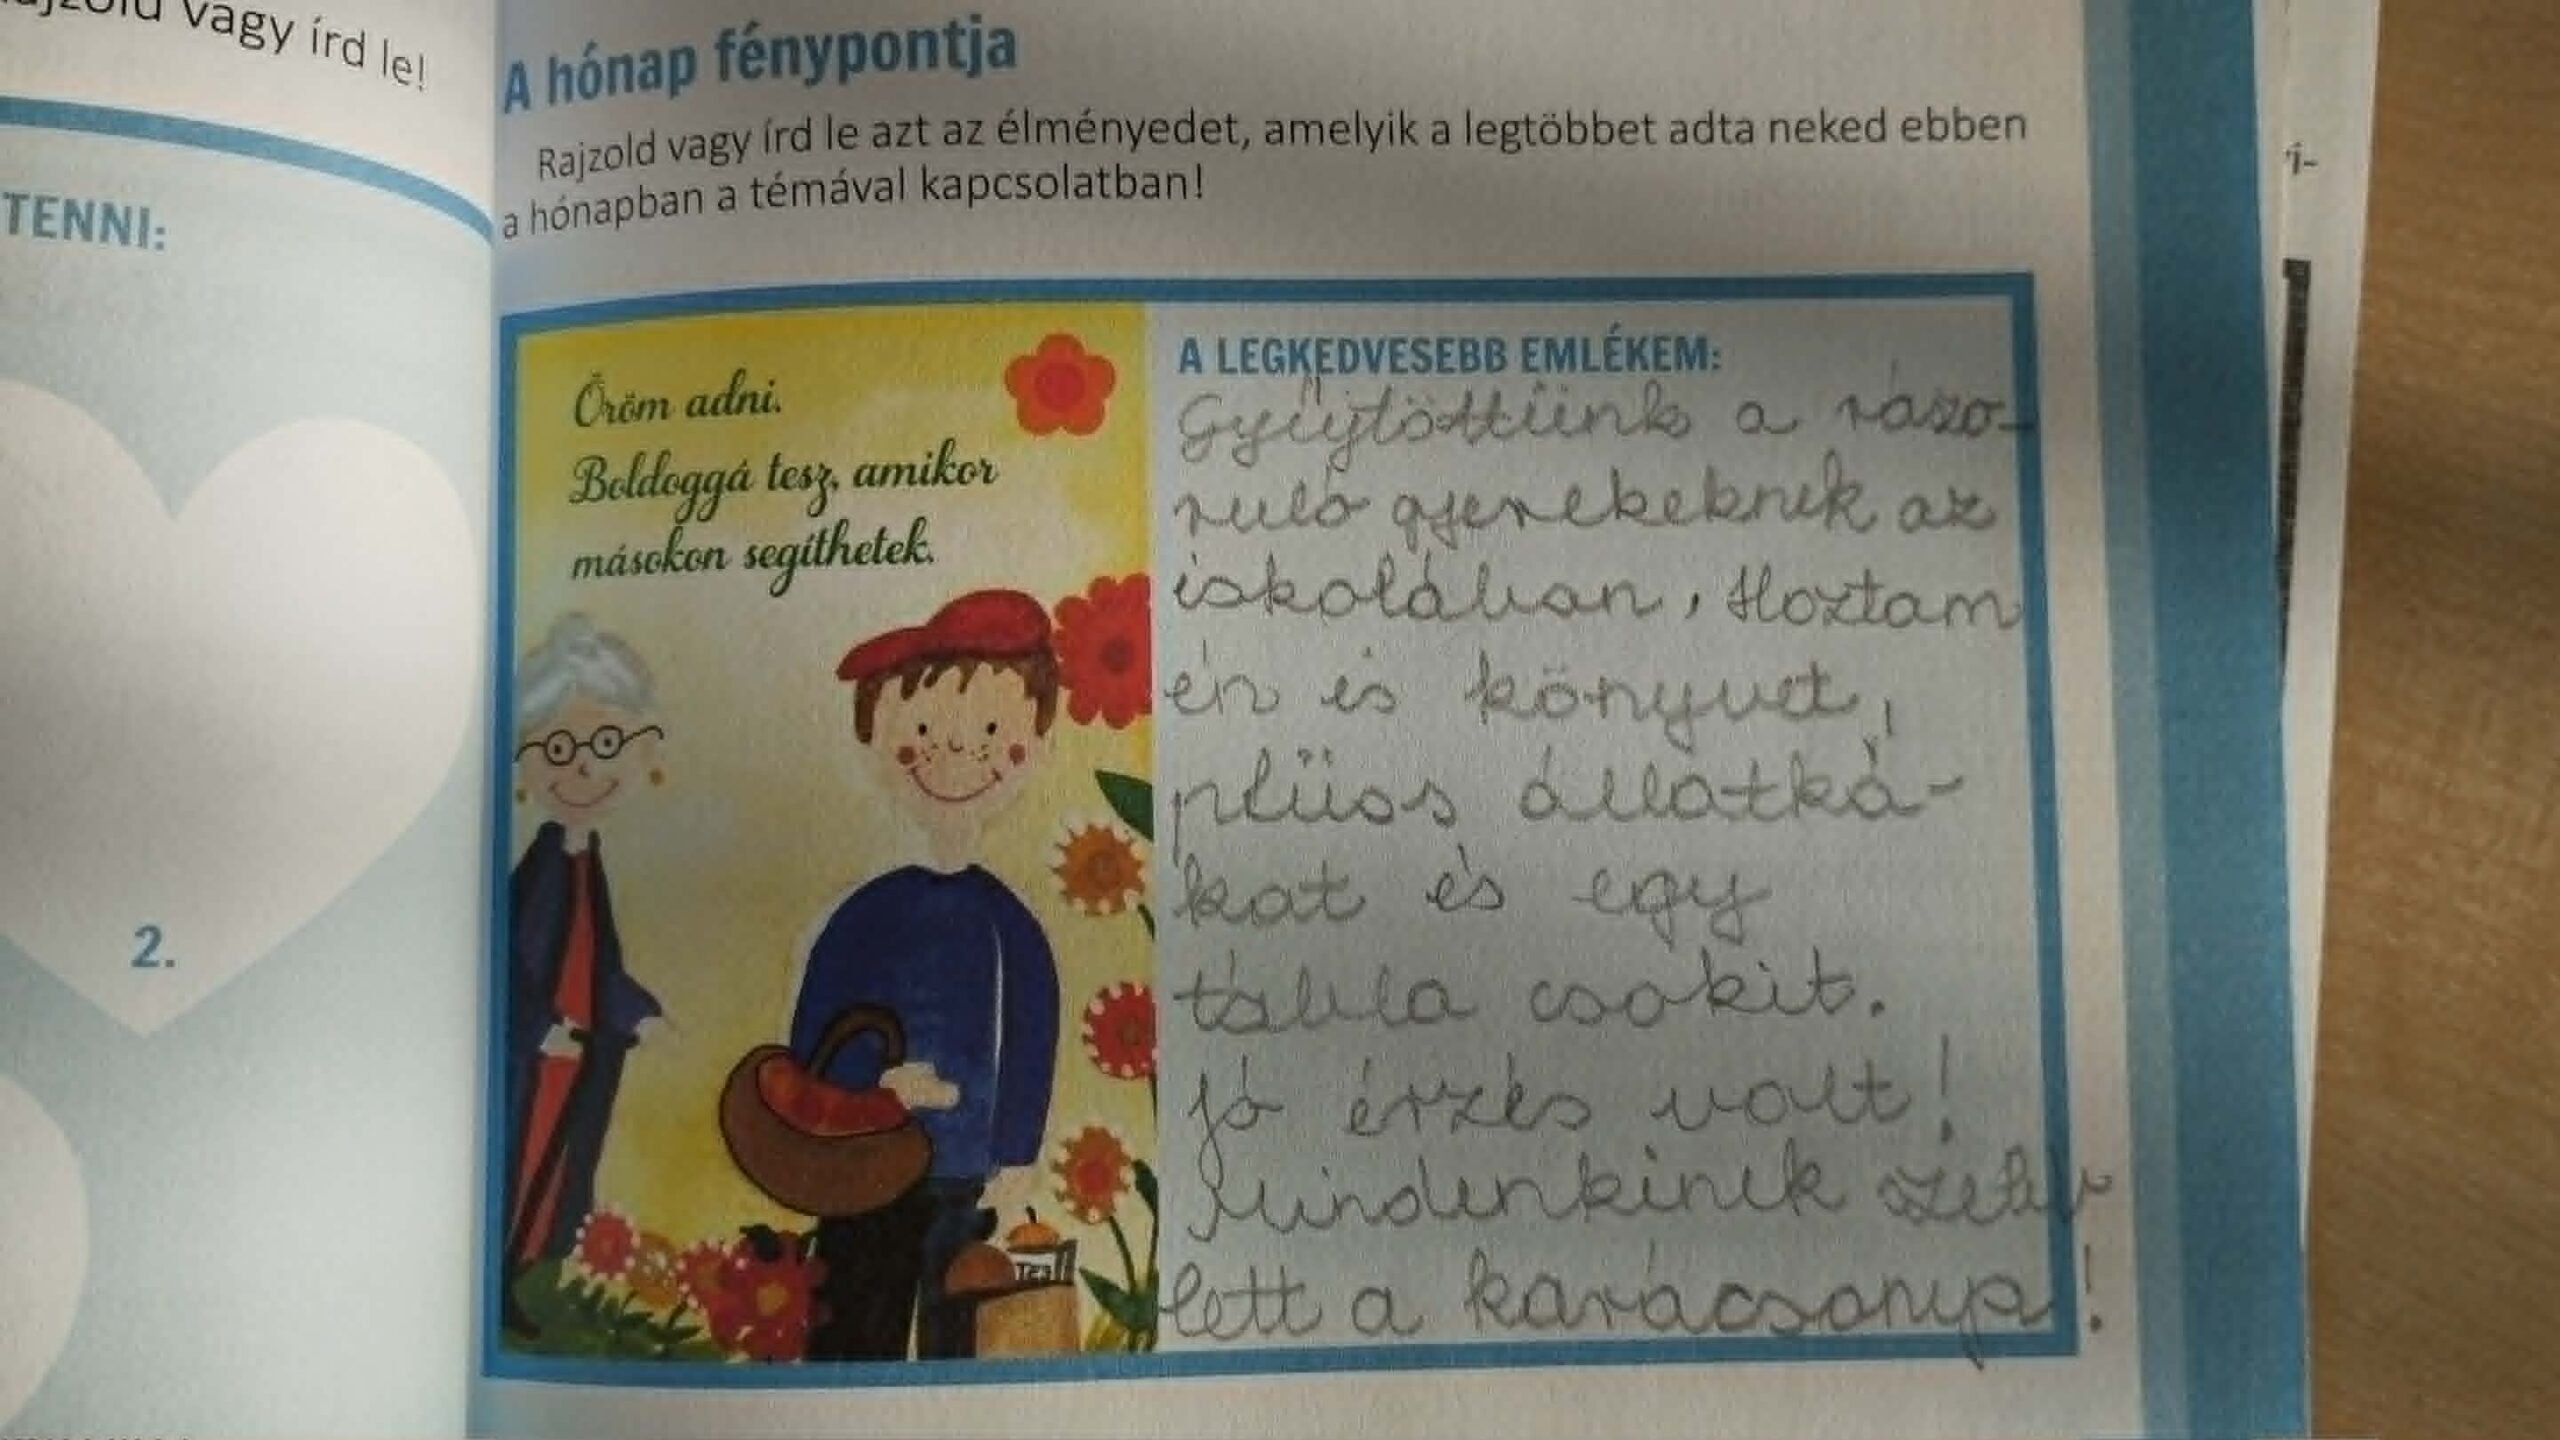 vagy írd le!
TENNI:
2.
A hónap fénypontja
Rajzold vagy írd le azt az élményedet, amelyik a legtöbbet adta neked ebben
a hónapban a témával kapcsolatban!
Öröm adni.
Boldoggá tesz, amikor
másokon segíthetek.
A LEGKEDVESEBB EMLÉKEM:
Gyűjtöttünk a rászo-
ruló gyerekeknek az
iskolában. Hoztam
én is könyvet,
plüss állatká-
kat és egy
tábla csokit.
Jó érzés volt!
Mindenkinek szebb
lett a karácsonya!